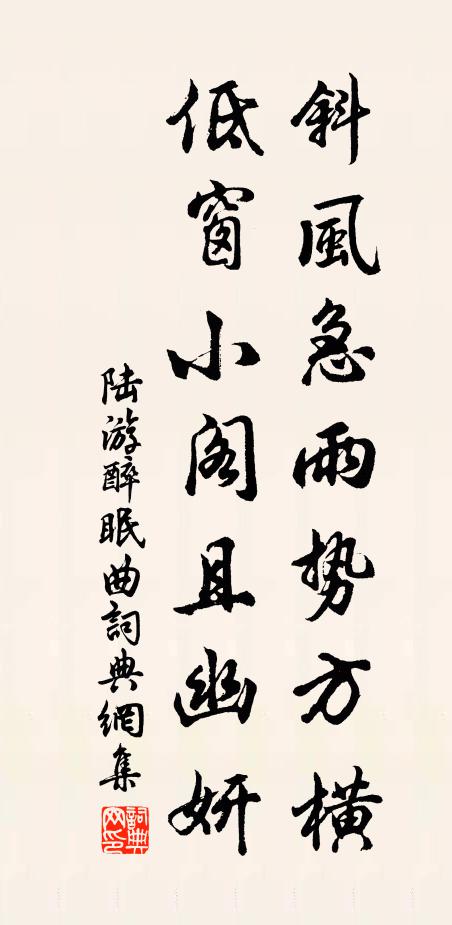 斜風急雨勢方横
低窗小阁且幽妍
陆游醉眠曲詞典網集
詞典網印